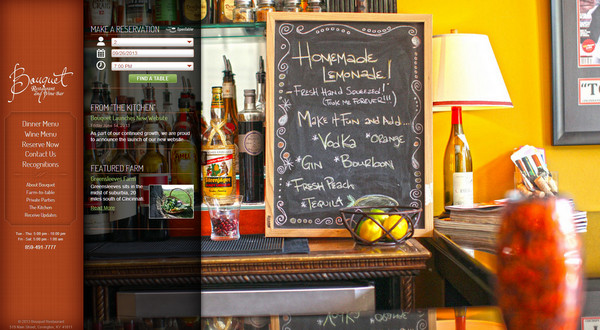 Bouquet
Restaurant
and Wine Bar
Dinner Menu
Wine Menu
Reserve Now
Contact Us
Recognitions
About Bouquet
Farm-to-table
Private Parties
The Kitchen
Receive Updates
859-491-7777
MAKE A RESERVATION
OpenTable
2
09/26/2013
7:00 PM
FIND A TABLE
FROM "THE KITCHEN"
Bouquet Launches New Website
Friday June 14, 2013
As part of our continued growth, we are proud
to announce the launch of our new website.
FEATURED FARM
Greensleeves Farm
Greensleeves sits in the
midst of suburbia, 20
miles south of Cincinnati.
Read More
Homemade
Lemonade!
- Fresh Hand Squeezed!
(Took me forever!!!)
Make it Fun and Add...
*Vodka *Orange
*Gin *Bourbon
*Fresh Peach
*Tequila